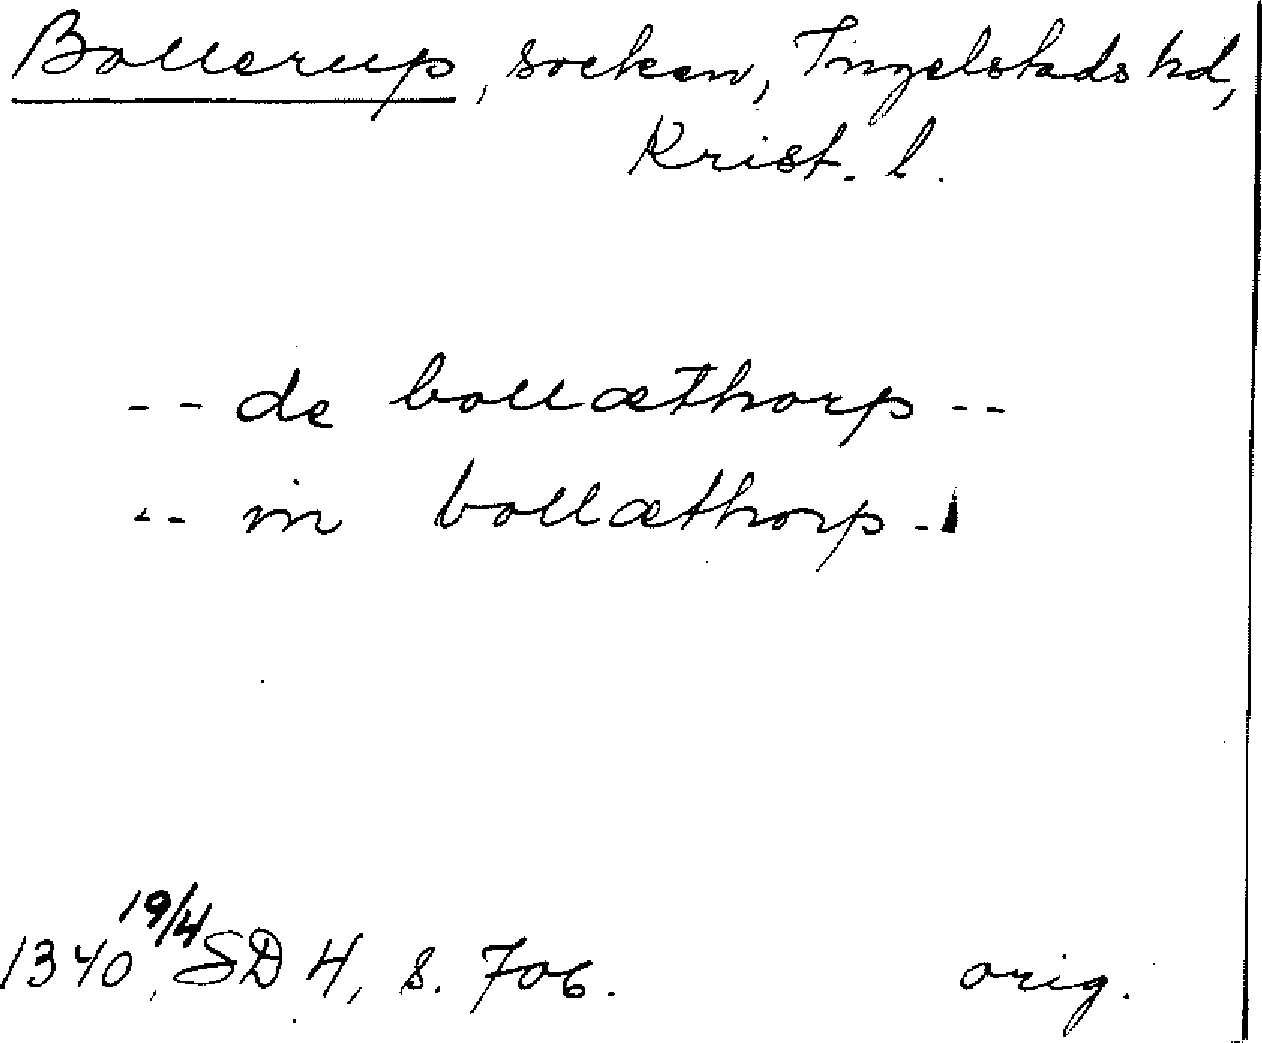 Bollerup, socken, Ingelstads hd,
Krist. l.
-- de bollæthorp --
-- in bollæthorp -.
1340 19/4, SD 4, s. 706. orig.